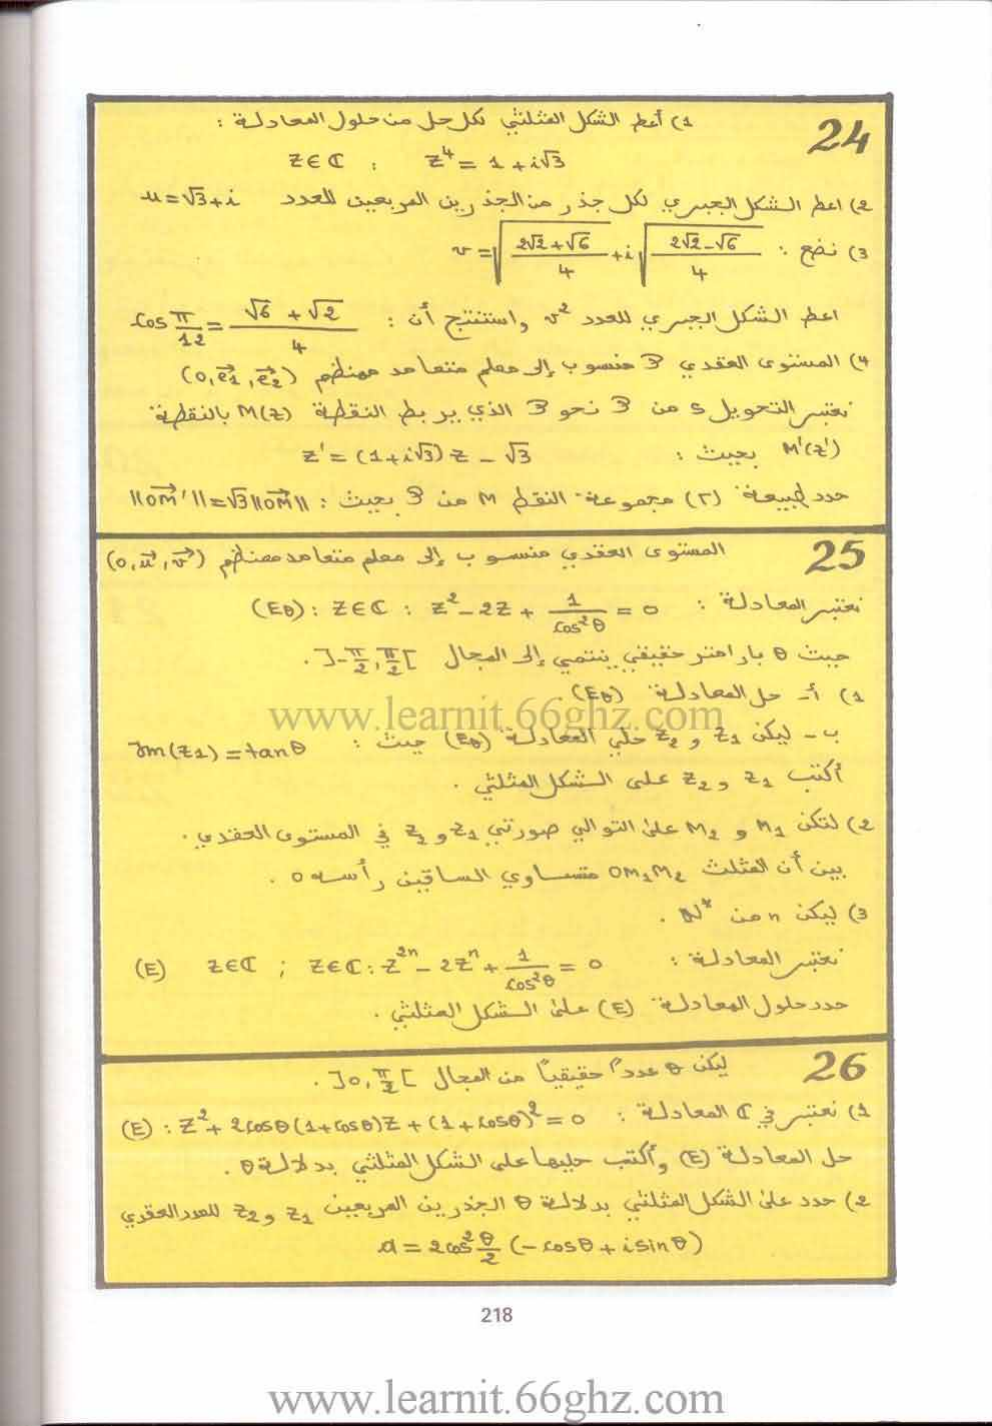 24
1) أعط الشكل المثلثي لكل حل من حلول المعادلة :
z∈ℂ : z⁴ = 1 + i√3
2) اعط الشكل الجبري لكل جذر من الجذرين المربعين للعدد u = √3 + i
3) نضع : v = √((2√2 + √6)/4) + i√((2√2 - √6)/4)
اعط الشكل الجبري للعدد v² واستنتج أن : cos π/12 = (√6 + √2)/4
4) المستوى العقدي P منسوب إلى معلم متعامد ممنظم (o, e₁⃗, e₂⃗)
نعتبر التحويل s من P نحو P الذي يربط النقطة M(z) بالنقطة
M'(z') بحيث : z' = (1 + i√3) z - √3
حدد طبيعة (Γ) مجموعة النقط M من P بحيث : ||OM'⃗|| = √3 ||OM⃗||
25
المستوى العقدي منسوب إلى معلم متعامد ممنظم (o, u⃗, v⃗)
نعتبر المعادلة : (Eθ) : z∈ℂ : z² - 2z + 1/cos²θ = 0
حيث θ بارامتر حقيقي ينتمي إلى المجال ]-π/2, π/2[ .
1) أ- حل المعادلة (Eθ) .
ب- ليكن z₁ و z₂ حلي المعادلة (Eθ) حيث : Im(z₁) = tanθ
أكتب z₁ و z₂ على الشكل المثلثي .
2) لتكن M₁ و M₂ على التوالي صورتي z₁ و z₂ في المستوى العقدي .
بين أن المثلث OM₁M₂ متساوي الساقين رأسه O .
3) ليكن n من ℕ* .
نعتبر المعادلة : z∈ℂ ; z∈ℂ : z²ⁿ - 2zⁿ + 1/cos²θ = 0 (E)
حدد حلول المعادلة (E) على الشكل المثلثي .
26
ليكن θ عدداً حقيقياً من المجال ]0, π/2[ .
1) نعتبر في ℂ المعادلة : (E) : z² + 2cosθ(1+cosθ)z + (1+cosθ)² = 0
حل المعادلة (E) وأكتب حليها على الشكل المثلثي بدلالة θ .
2) حدد على الشكل المثلثي بدلالة θ الجذرين المربعين z₁ و z₂ للعدد العقدي
a = 2cos² θ/2 (-cosθ + i sinθ)
218
www.learnit.66ghz.com
www.learnit.66ghz.com